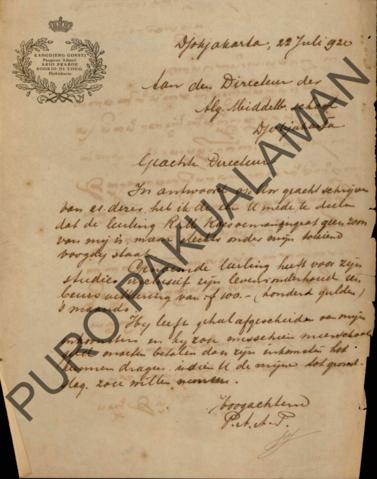 KANGDJENG GOESTI
Pangeran Adipati
ARIO PRABOE
SOERJO DI LOGO
Djokjakarta
Djokjakarta, 22 Juli 1920
Aan den Directeur der
Alg. Middelb. school
Djokjakarta
Geachte Directeur
In antwoord op Uw geacht schrijven
van 21 dezer, heb ik de eer U mede te deelen
dat de leerling R.M. geen zoon
van mij is, maar slechts onder mijn
voogdij staat.
leerling heeft voor zijn
studie en levensonderhoud een
beurs uitkeering van f 100.- (honderd gulden)
's maands.
Hij leeft geheel afgescheiden van mijn
inkomsten en hij zou misschien meer
geld moeten betalen dan zijn inkomsten het
kunnen dragen, indien U de mijne tot grond-
slag zou willen nemen.
Hoogachtend
P.A.A.P.
PURO PAKUALAMAN